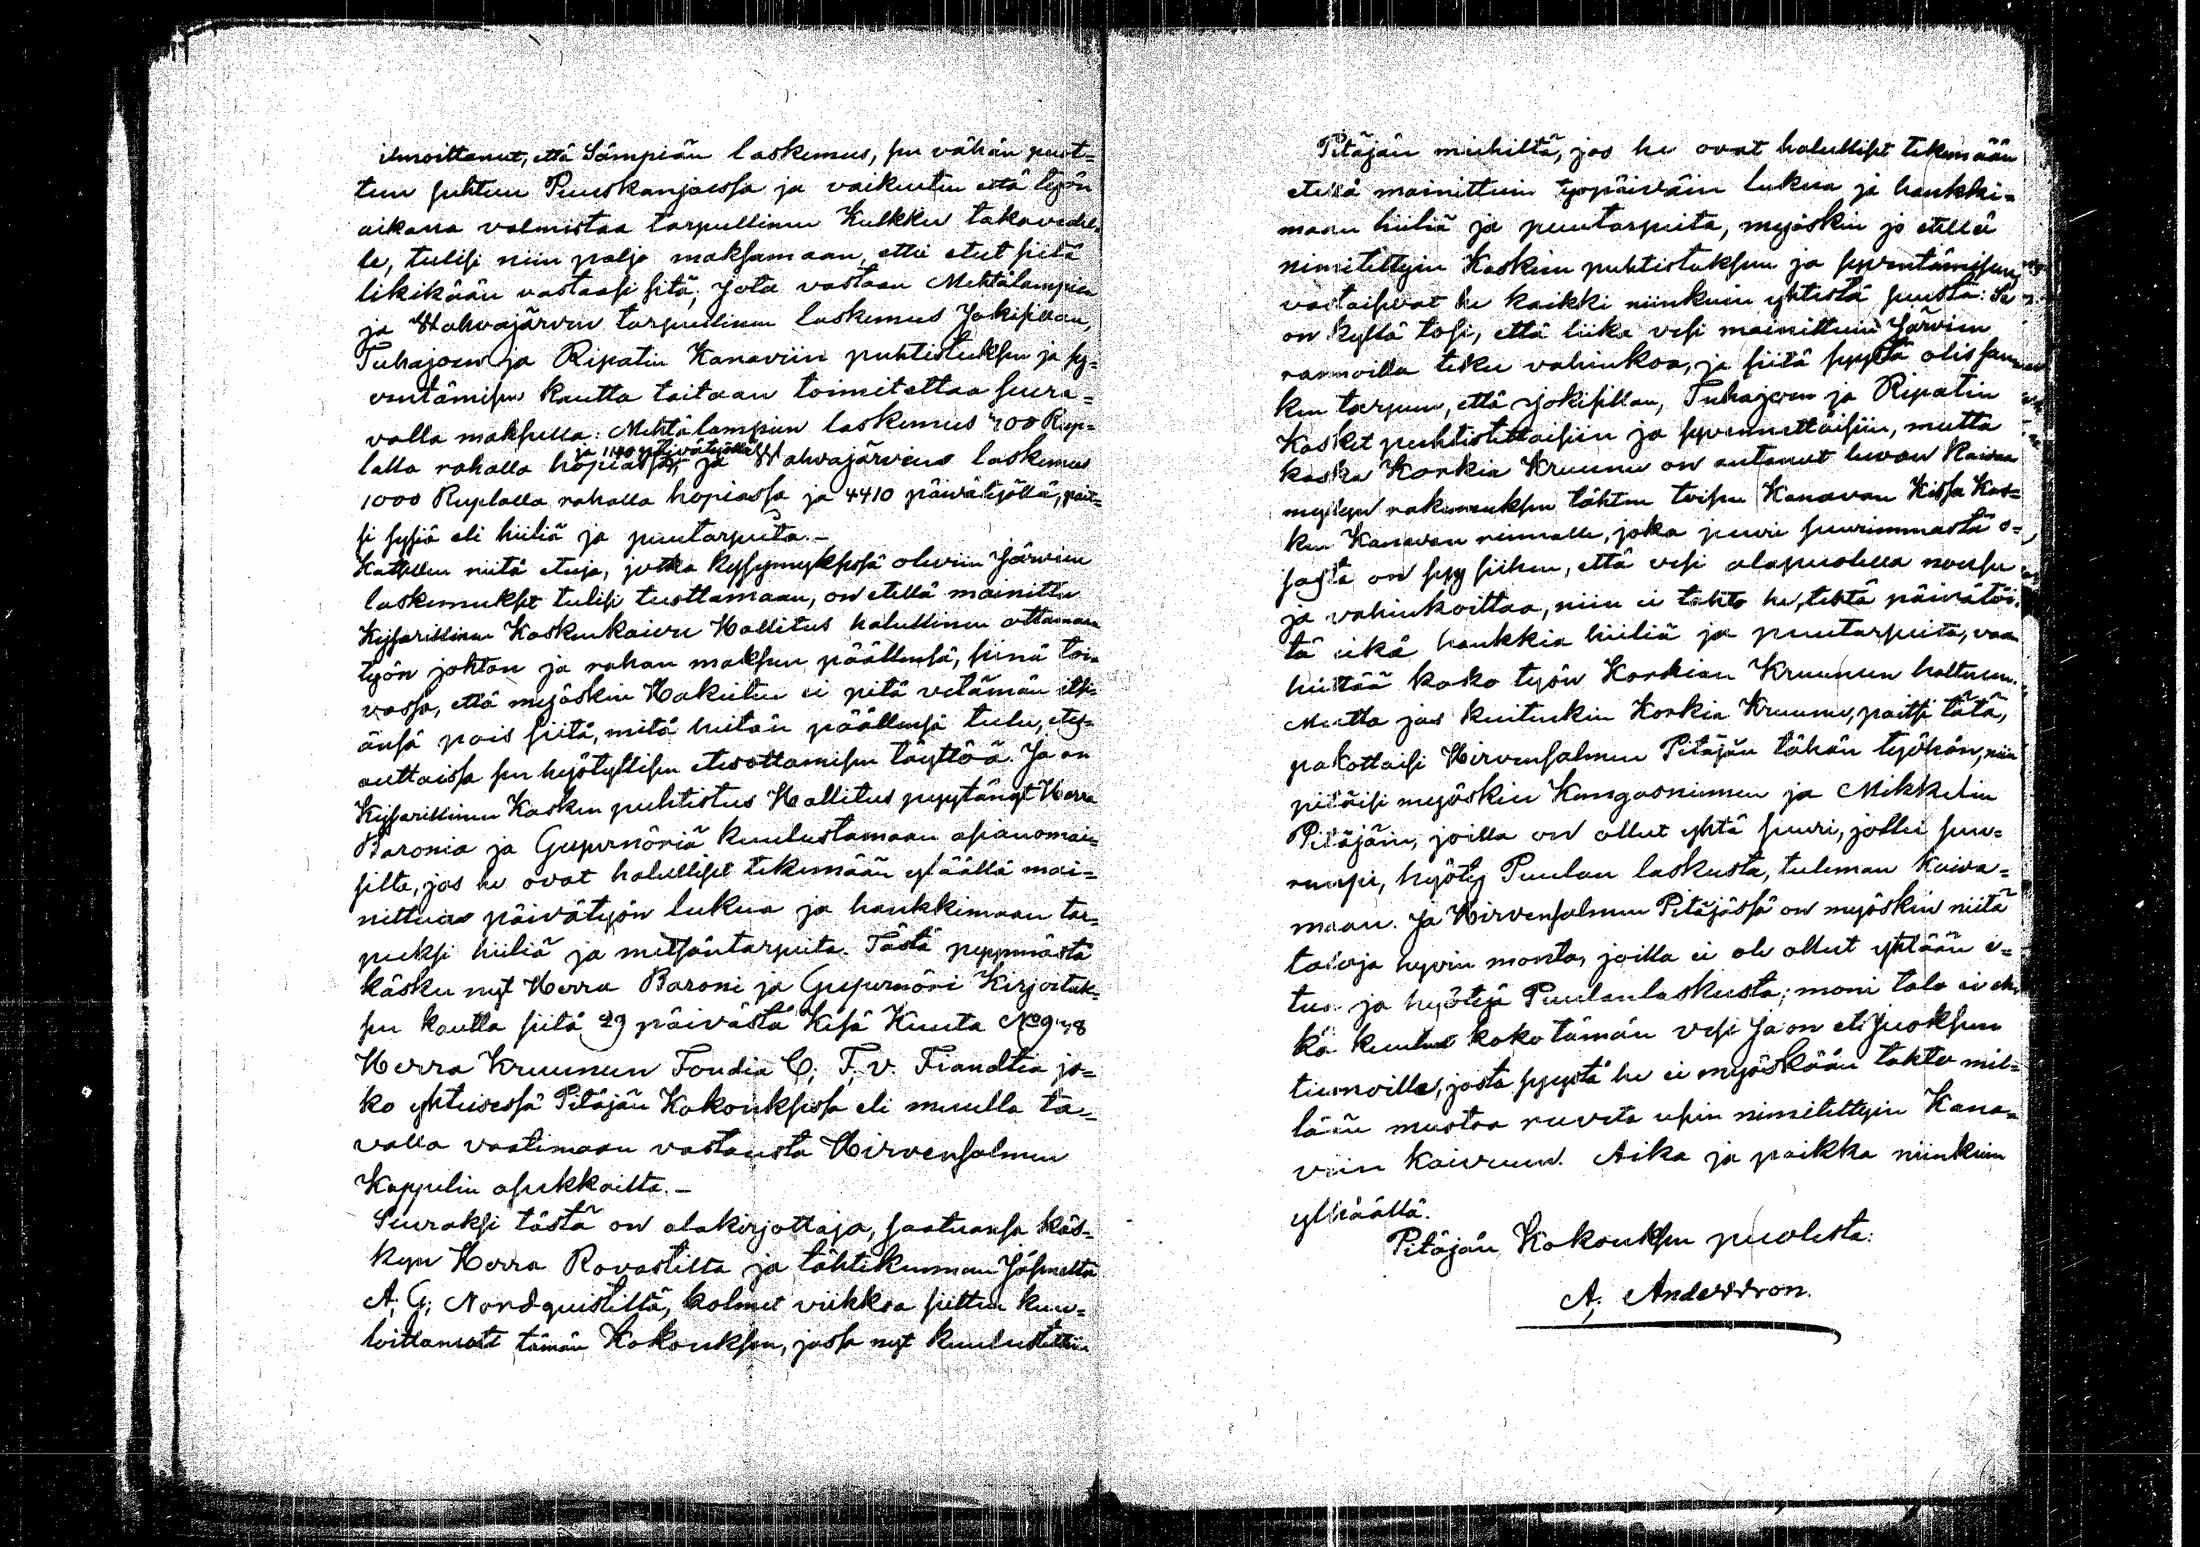 ilmoittanut, että Sämpiän laskemus, sen vähän puut-
tun suhtun Puuskanjoessa ja vaikutun että työn
aikana valmistaa tarpullinen Kulkku takavedel-
le, tulisi niin paljo maksamaan, ettei etut siitä
likikään vastaisi sitä, Jota vastaan Mehtälampin
ja Wahvajärven tarpullinen laskemus Jokisillan,
Tuhajoen ja Ripatin Kanaviin puhtistuksen ja sy-
ventämisen kautta taitaan toimitettaa seura-
valla maksulla: Mehtälampiin laskemus 700 Rup-
lalla rahalla hopiassa, ja 1140 päivätyöllä ja Wahvajärvens laskemus
1000 Ruplalla rahalla hopiassa ja 4410 päivätyöllä, pait-
si sysiä eli hiiliä ja puutarpeita.-
Katsellen niitä etuja, jotka kysymyksessä olevin Järvien
laskemukset tulisi tuottamaan, on etellä mainittu
Kejsarillinen Koskenkaivu Hallitus halullinen ottamaan
työn johton ja rahan maksun päällensä, siinä toi-
vossa, että myöskin Hakiitten ei pitä vetämän itsi-
änsä pois siitä, mitä heitän päällensä tulee, ety-
auttaissa sen hyötyllisen etesottamisen täyttöä. Ja on
Kejsarillinen Kosken puhtistus Hallitus pyytänyt Herra
Baronia ja Gupernöriä kuulustamaan asianomai-
silta, jos he ovat halulliset tekemään yläällä mai-
nittuin päivätyön lukua ja hankkimaan tar-
peeksi hiiliä ja metsäntarpeita. Tästä syymmästä
käsku nyt Herra Baroni ja Gupernöri Kirjoituk-
sen kautta siitä 29 päivästä Kesä Kuuta No 948
Herra Kruunun Foudia C. F. v. Frandtia jo-
ko yhteisessä Pitäjän Kokouksessa eli muulla ta-
valla vaatimaan vastausta Hirvensalmen
Kappelin asukkailta.-
Seuraksi tästä on alakirjottaja, saatuansa käs-
kyn Herra Rovastilta ja tähtikunnan Jäsenelta
A. G. Nordquistiltä, kolmet viikkoa sitten kuu-
loittanut tämän Kokouksen, jossa nyt kuulustettiin
Pitäjän miehiltä, jos he ovat halulliset tekemään
etellä mainittuin työpäiväin lukua ja hankki-
maan hiiliä ja puutarpeita, myöskin jo etellä
nimitettyin Koskien puhtistuksen ja syventämisen
vastaisivat he kaikki niinkuin yhtestä suusta: Se
on kyllä tosi, että liika vesi mainittuin Järvien
rannoilla tekee vahinkoa, ja siitä syystä olis sun-
ken tarpeen, että Jokisillan, Tuhajoen ja Ripatin
Kosket puhtistettaisiin ja syvennettäisiin, mutta
koska Korkia Kruunu on antanut luvan Kaivaa
myllyn rakennuksen tähten toisen Kanavan Kissa Kos-
ken Kanavan rinnalle, joka juuri suurimmasta o-
sasta on syy siihen, että vesi alapuolella nousee
ja vahinkoittaa, niin ei tahto he, tehtä päivätöi-
tä eikä hankkia hiiliä ja puutarpeita, vaan
heittää koko työn Korkian Kruunun haltuun.
Mutta jos kuitenkin Korkia Kruunu, paitsi tätä,
pakottaisi Hirvensalmen Pitäjän tähän työhön, niin
pitäisi myöskin Kangasniemen ja Mikkelin
Pitäjäin, joilla on ollut yhtä suuri, jollei suu-
rempi, hyöty Puulan laskusta, tuleman Kaiva-
maan. Ja Hirvensalmen Pitäjässä on myöskin niitä
taloja hyvin monta, joilla ei ole ollut yhtään e-
tua ja hyötyä Puulanlaskusta; moni talo ei eh-
kä kuulu koko tämän vesi Jaon eli Juoksun
tienoille, josta syystä he ei myöskään tahto mil-
lään muotoa ruveta usein nimitettyin Kana-
viin kaivuun. Aika ja paikka niinkuin
ylhäällä.
Pitäjän Kokouksen puolesta:
A. Andersson.